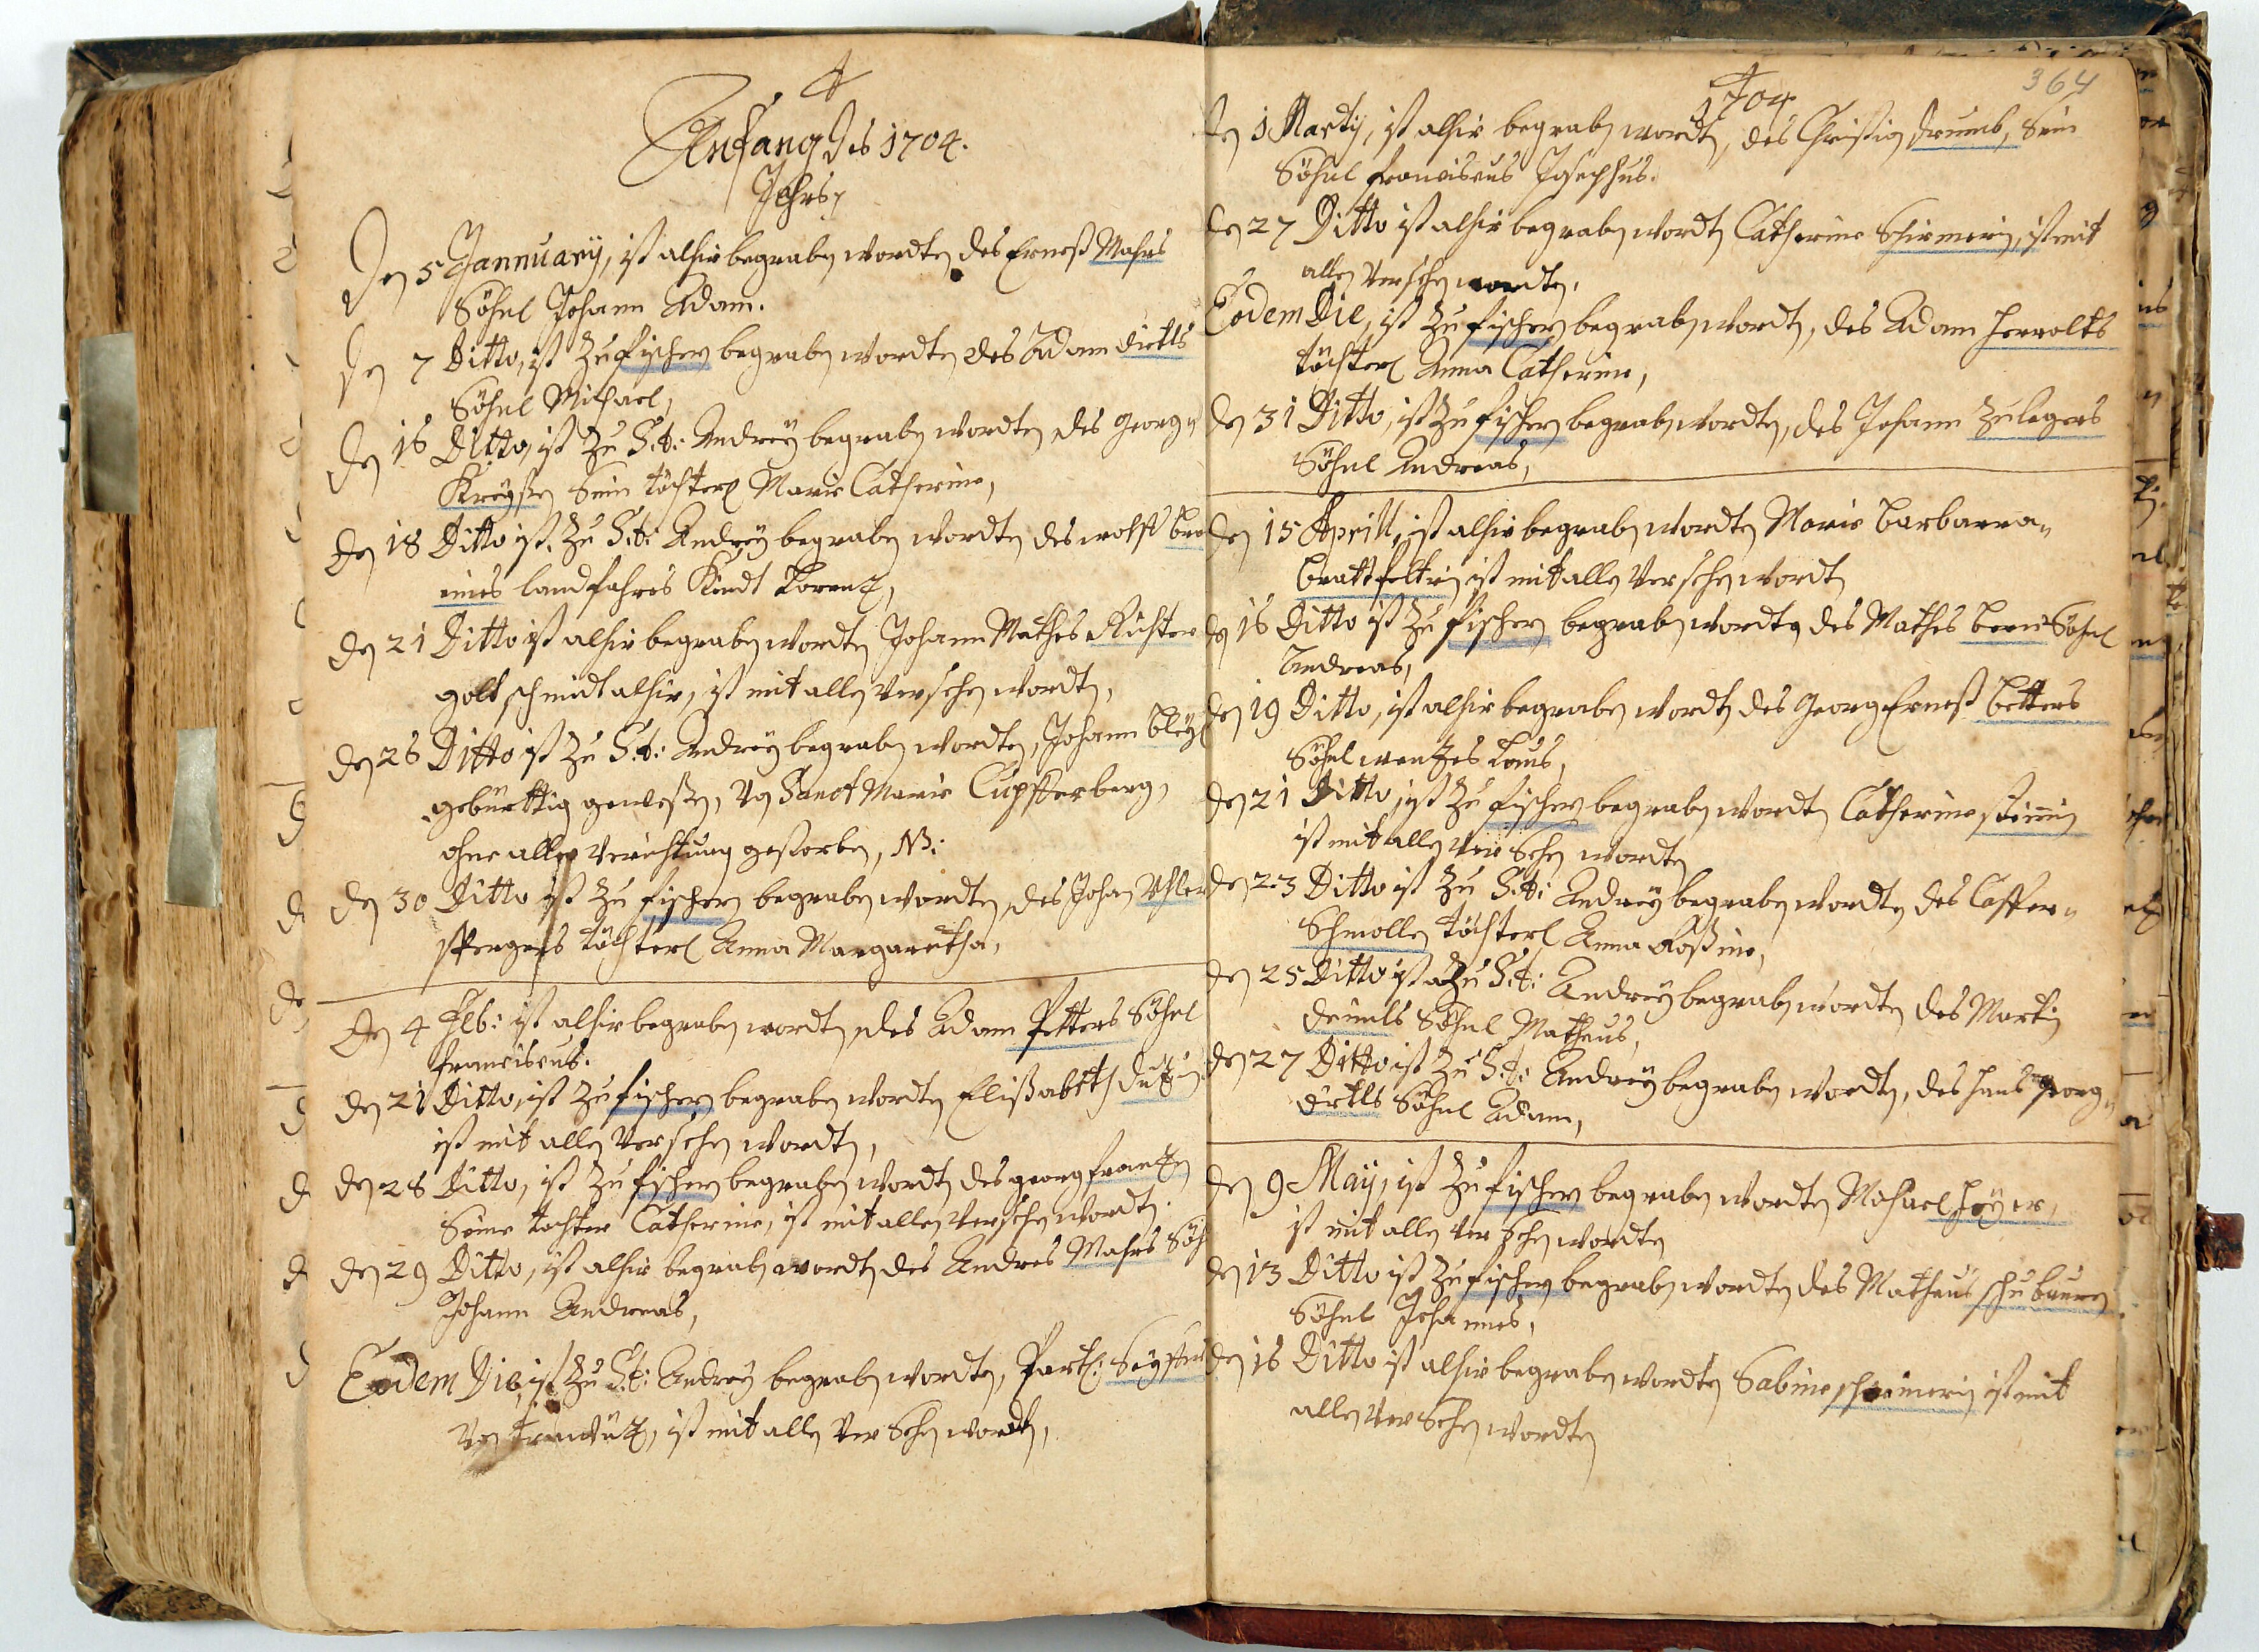 Anfang des 1704.
Jahrs
Den 5 Jannuary, ist alhir begraben wordten des Ernest Mahrs
Söhnl Johann Adam.
den 7 Ditto, ist zu fischern begraben wordten des Adam dietls
Söhnl Michael,
den 16 Ditto, ist zu S.t: Andrey begraben wordten des Georg
Sein töchterl Maria Catherina,
den 18 Ditto ist zu S.t: Andrey begraben wordten des wolff
landfahrs Kindt Lorentz,
den 21 Ditto ist alhir begraben wordten Johann Mathes Richter
goltschmidt alhir, ist mit allen versehen wordten,
den 26 Ditto ist zu S.t: Andrey begraben wordten, Johann Bleyl
gebürttig geweßen, von Sanct Maria Cupfferberg,
ohne alle verichtung gestorben, NB:
den 30 Ditto ist zu fischern begraben wordten, des Johan
töchterl Anna Margaretha,
den 4 Feb: ist alhir begraben wordten des Adam Petters Söhnl
franciscus.
den 21 Ditto, ist zu fischern begraben wordten Elisabeth
ist mit allen versehen wordten,
den 28 Ditto, ist zu fischern begraben wordten des georg frantzen
Seine tochter Catherina, ist mit allen versehen wordten.
den 29 Ditto, ist alhir begraben wordten des Andres Mahrs Söh
Johann Andreas,
Eodem Die, ist zu S.t: Andrey begraben wordten,
von ist mit allen versehen wordten,
364
1704
den 1 Marty, ist alhir begraben wordten, des Christian Sein
Söhnl franciscus Josephus.
den 27 Ditto ist alhir begraben wordten Catherina Schirmerin, ist mit
allen versehen wordten.
Eodem Die, ist zu fischern begraben wordten, des Adam herolts
töchterl Anna Catherina,
den 31 Ditto, ist zu fischern begraben wordten, des Johann Zulegers
Söhnl Andreas,
den 15 Aprill, ist alhir begraben wordten Maria Barbarra
ist mit allen versehen wordten
den 16 Ditto ist zu fischern begraben wordten des Mathes Söhnl
Andreas,
den 19 Ditto, ist alhir begraben wordten des Georg Ernest Betters
Söhnl wentzeslaus,
den 21 Ditto, ist zu fischern begraben wordten Catherina
ist mit allen versehen wordten
den 23 Ditto ist zu S.t: Andrey begraben wordten des Casper
Schmollen töchterl Anna Roßina,
den 25 Ditto ist zu S.t: Andrey begraben wordten des Martin
Söhnl Matheus,
den 27 Ditto ist zu S.t: Andrey begraben wordten, des hans georg
dietls Söhnl Adam,
den 9 May, ist zu fischern begraben wordten Michael heyer,
ist mit allen versehen wordten
den 13 Ditto ist zu fischern begraben wordten des Matheus
Söhnl Johannes,
den 16 Ditto ist alhir begraben wordten Sabina ist mit
allen versehen wordten